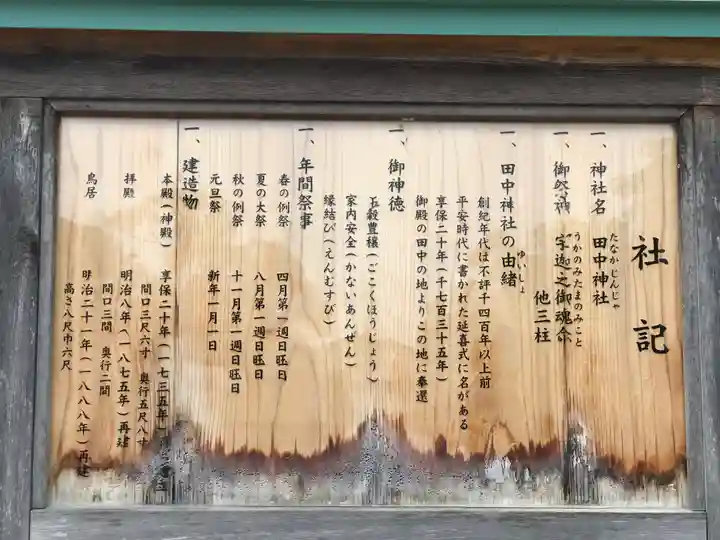 社記
一、神社名 田中神社
たなかじんじゃ
一、御祭神 宇迦之御魂命
うかのみたまのみこと
他三柱
一、田中神社の由緒
ゆいしょ
創紀年代は不評千四百年以上前
平安時代に書かれた延喜式に名がある
享保二十年(千七百三十五年)
御殿の田中の地よりこの地に奉還
一、御神徳
五穀豊穣(ごこくほうじょう)
家内安全(かないあんぜん)
縁結び(えんむすび)
一、年間祭事
春の例祭 四月第一週日旺日
夏の大祭 八月第一週日旺日
秋の例祭 十一月第一週日旺日
元旦祭 新年一月一日
一、建造物
本殿(神殿) 享保二十年(一七三五年)
間口三尺六寸 奥行五尺八寸
拝殿 明治八年(一八七五年)再建
間口三間 奥行二間
鳥居 明治二十一年(一八八八年)再建
高さ八尺巾六尺